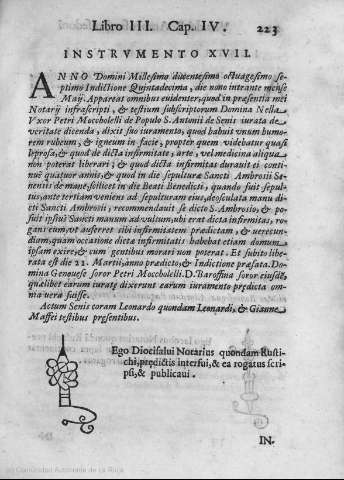 Libro III. Cap. IV. 223
INSTRVMENTO XVII.
ANNO Domini Millesimo ducentesimo octuagesimo se-
ptimo Indictione Quintadecima, die nono intrante mense
Maij. Appareat omnibus euidenter, quod in præsentia mei
Notarij infrascripti, & testium subscriptorum Domina Nella
Vxor Petri Moccholelli de Populo S. Antonii de Senis iurata de
veritate dicenda, dixit suo iuramento, quod habuit vnum humo-
rem rubeum, & igneum in facie, propter quem videbatur quasi
leprosa, & quod de dicta infirmitate, arte, vel medicina aliqua
non poterat liberari, & quod dicta infirmitas durauit ei conti-
nuè quatuor annis, & quod in die sepulturæ Sancti Ambrosii Se-
nensis de mane, scilicet in die Beati Benedicti, quando fuit sepul-
tus, ante tertiam veniens ad sepulturam eius, deosculata manu di-
cti Sancti Ambrosii, recommendauit se dicto S. Ambrosio, & po-
suit ipsius Sancti manum ad vultum, vbi erat dicta infirmitas, ro-
gans eum, vt auferret sibi infirmitatem prædictam, & uerecun-
diam, quam occasione dictæ infirmitatis habebat etiam domum
ipsam exire, & cum gentibus morari non poterat. Et subito libe-
rata est die 21. Martij, anno prædicto, & Indictione præfata. Do-
mina Genouese soror Petri Moccholelli. D. Baroffina soror eiusdē,
quælibet earum iuratę dixerunt earum iuramento prędicta om-
nia uera fuisse.
Actum Senis coram Leonardo quondam Leonardi, & Giunne
Maffei testibus presentibus.
Ego Diotisalui Notarius quondam Rusti-
chi, prędictis interfui, & ea rogatus scri-
psi, & publicaui.
IN.
(c) Comunidad Autónoma de La Rioja